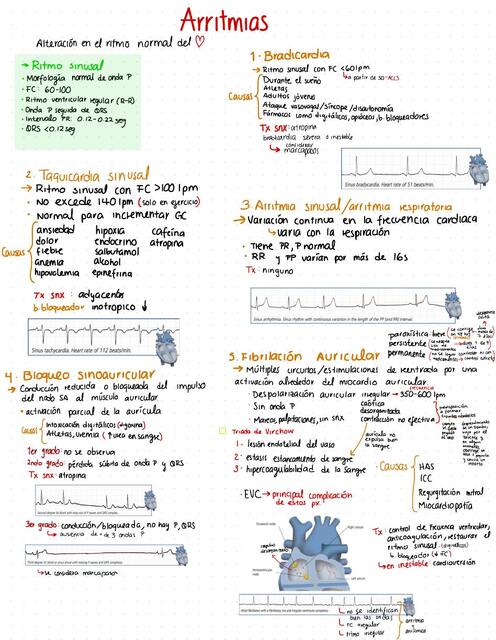 Arritmias
Alteración en el ritmo normal del
→ Ritmo sinusal
· Morfología normal de onda P
· FC: 60-100
· Ritmo ventricular regular (R-R)
· Onda P seguida de QRS
· Intervalo PR: 0.12-0.22 seg
· QRS <0.12 seg
1. Bradicardia
→ Ritmo sinusal con FC <60 lpm
↳ a partir de 50-ACLS
Causas
Durante el sueño
Atletas
Adultos jóvenes
Ataque vasovagal/síncope/disautonomía
Fármacos como digitálicos, opiáceos, b. bloqueadores
Tx snx: atropina
bradicardia severa o inestable
considerar
↳ marcapasos
Sinus bradycardia. Heart rate of 51 beats/min.
2. Taquicardia sinusal
→ Ritmo sinusal con FC >100 lpm
· No excede 140 lpm (solo en ejercicio)
· Normal para incrementar GC
Causas
ansiedad hipoxia cafeína
dolor endocrino atropina
fiebre salbutamol
anemia alcohol
hipovolemia epinefrina
Tx snx: adyacentes
b. bloqueador inotropico ↓
Sinus tachycardia. Heart rate of 112 beats/min.
3. Arritmia sinusal/arritmia respiratoria
→ Variación continua en la frecuencia cardiaca
↳ varia con la respiración
· Tiene PR, P normal
· RR y PP varían por más de 16s
Tx: ninguno
Sinus arrhythmia. Sinus rhythm with continuous variation in the length of the PP (and RR) interval.
4. Bloqueo sinoauricular
→ Conducción reducida o bloqueada del impulso
del nodo SA al músculo auricular
· activación parcial de la aurícula
Causas
Intoxicación digitálicos
Atletas, uremia (↑urea en sangre)
1er grado: no se observa
2ndo grado: pérdida súbita de onda P y QRS
Tx snx: atropina
3er grado: conducción/bloqueada, no hay P, QRS
↳ ausencia de + de 3 ondas P
↳ se considera marcapasos
5. Fibrilación Auricular
paroxística: breve
persistente
permanente
→ Múltiples circuitos/estimulaciones de reentrada por una
activación alrededor del miocardio auricular
frecuencia
· Despolarización auricular irregular → 350-600 lpm
caótica
desorganizada
· Sin onda P
contracción no efectiva
· Mareos, palpitaciones, sin snx
aurícula no
expulsa bien
la sangre
Triada de Virchow
1. lesión endotelial del vaso
2. estasis estancamiento de sangre
3. hipercoagulabilidad de la sangre
· EVC → principal complicación
de estos px!
· Causas
HAS
ICC
Regurgitación mitral
Miocardiopatía
Tx: control de frecuencia ventricular,
anticoagulación, restaurar el
ritmo sinusal
b. bloqueador (↓ FC)
↳ en inestable: cardioversión
↳ no se identifican
bien las ondas
FC irregular
ritmo irregular